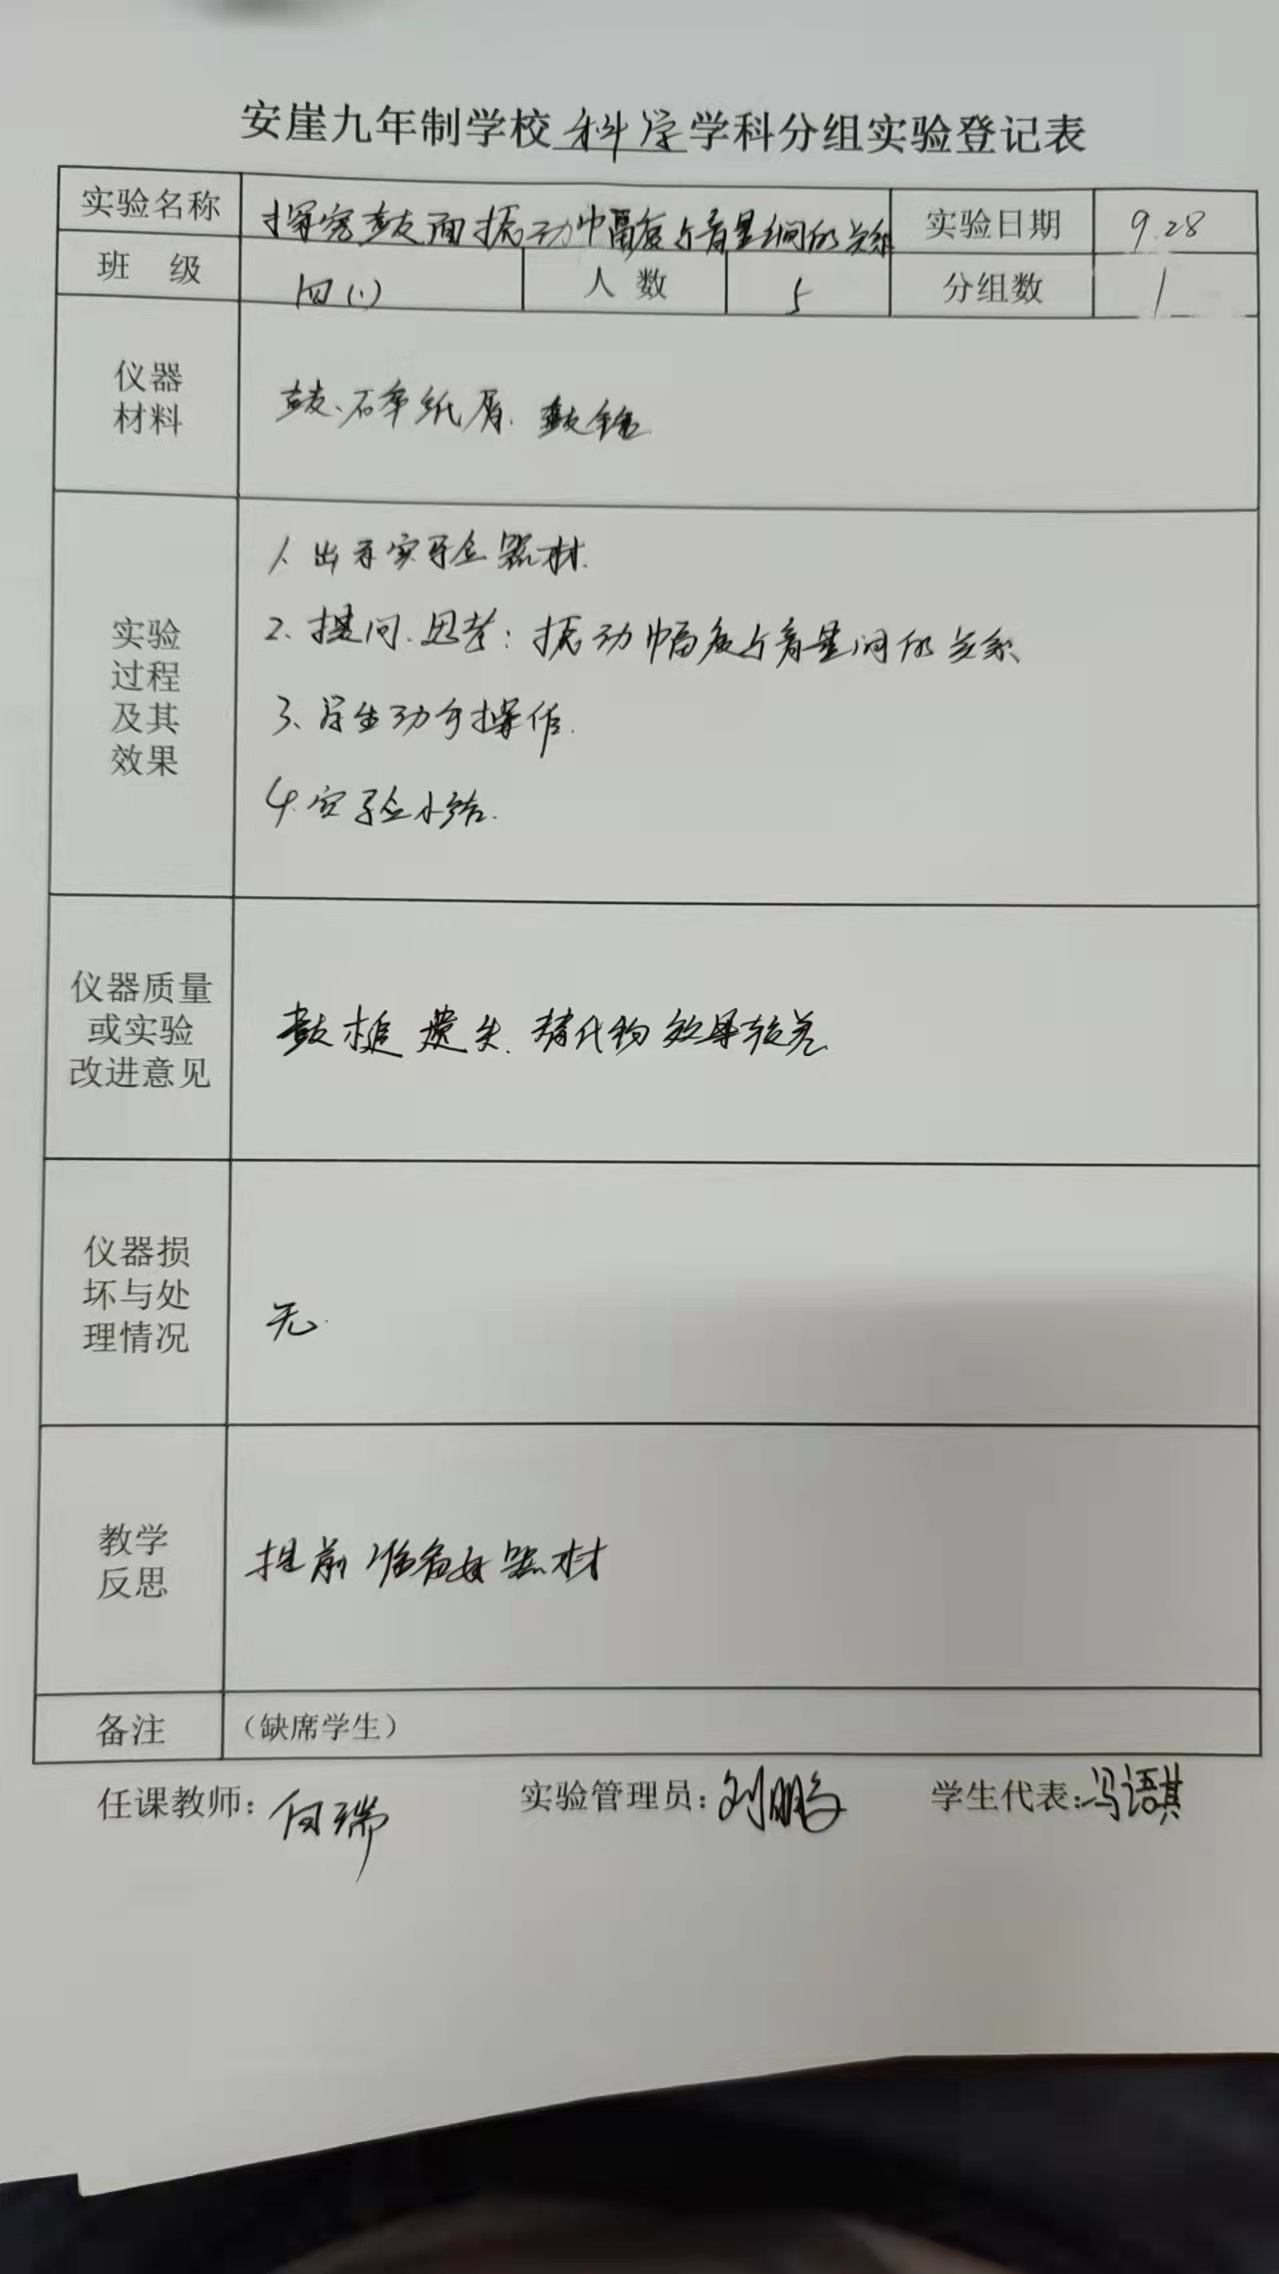 安崖九年制学校科学学科分组实验登记表
实验名称 探究鼓面振动幅度与音量间的关系 实验日期 9.28
班 级 四(1) 人 数 5 分组数 1
仪器
材料
鼓、碎纸屑、鼓锤
实验
过程
及其
效果
1、出示实验器材.
2、提问、思考：振动幅度与音量间的关系、
3、学生动手操作.
4.实验小结.
仪器质量
或实验
改进意见
鼓槌遗失、替代物效果较差
仪器损
坏与处
理情况
无.
教学
反思
提前准备好器材
备注 （缺席学生）
任课教师： 实验管理员：刘鹏 学生代表：冯语淇